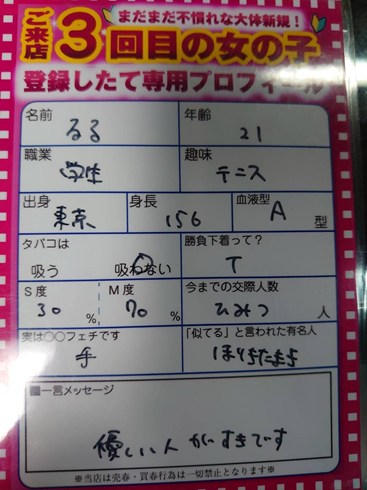 まだまだ不慣れな大体新規！
ご来店3回目の女の子
登録したて専用プロフィール
名前 るる 年齢 21
職業 学生 趣味 テニス
出身 東京 身長 156 血液型 A 型
タバコは 吸う 吸わない 勝負下着って？ T
S度 30 % M度 70 % 今までの交際人数 ひみつ 人
実は○○フェチです 手 「似てる」と言われた有名人
■一言メッセージ
優しい人がすきです
※当店は売春・買春行為は一切禁止となります※